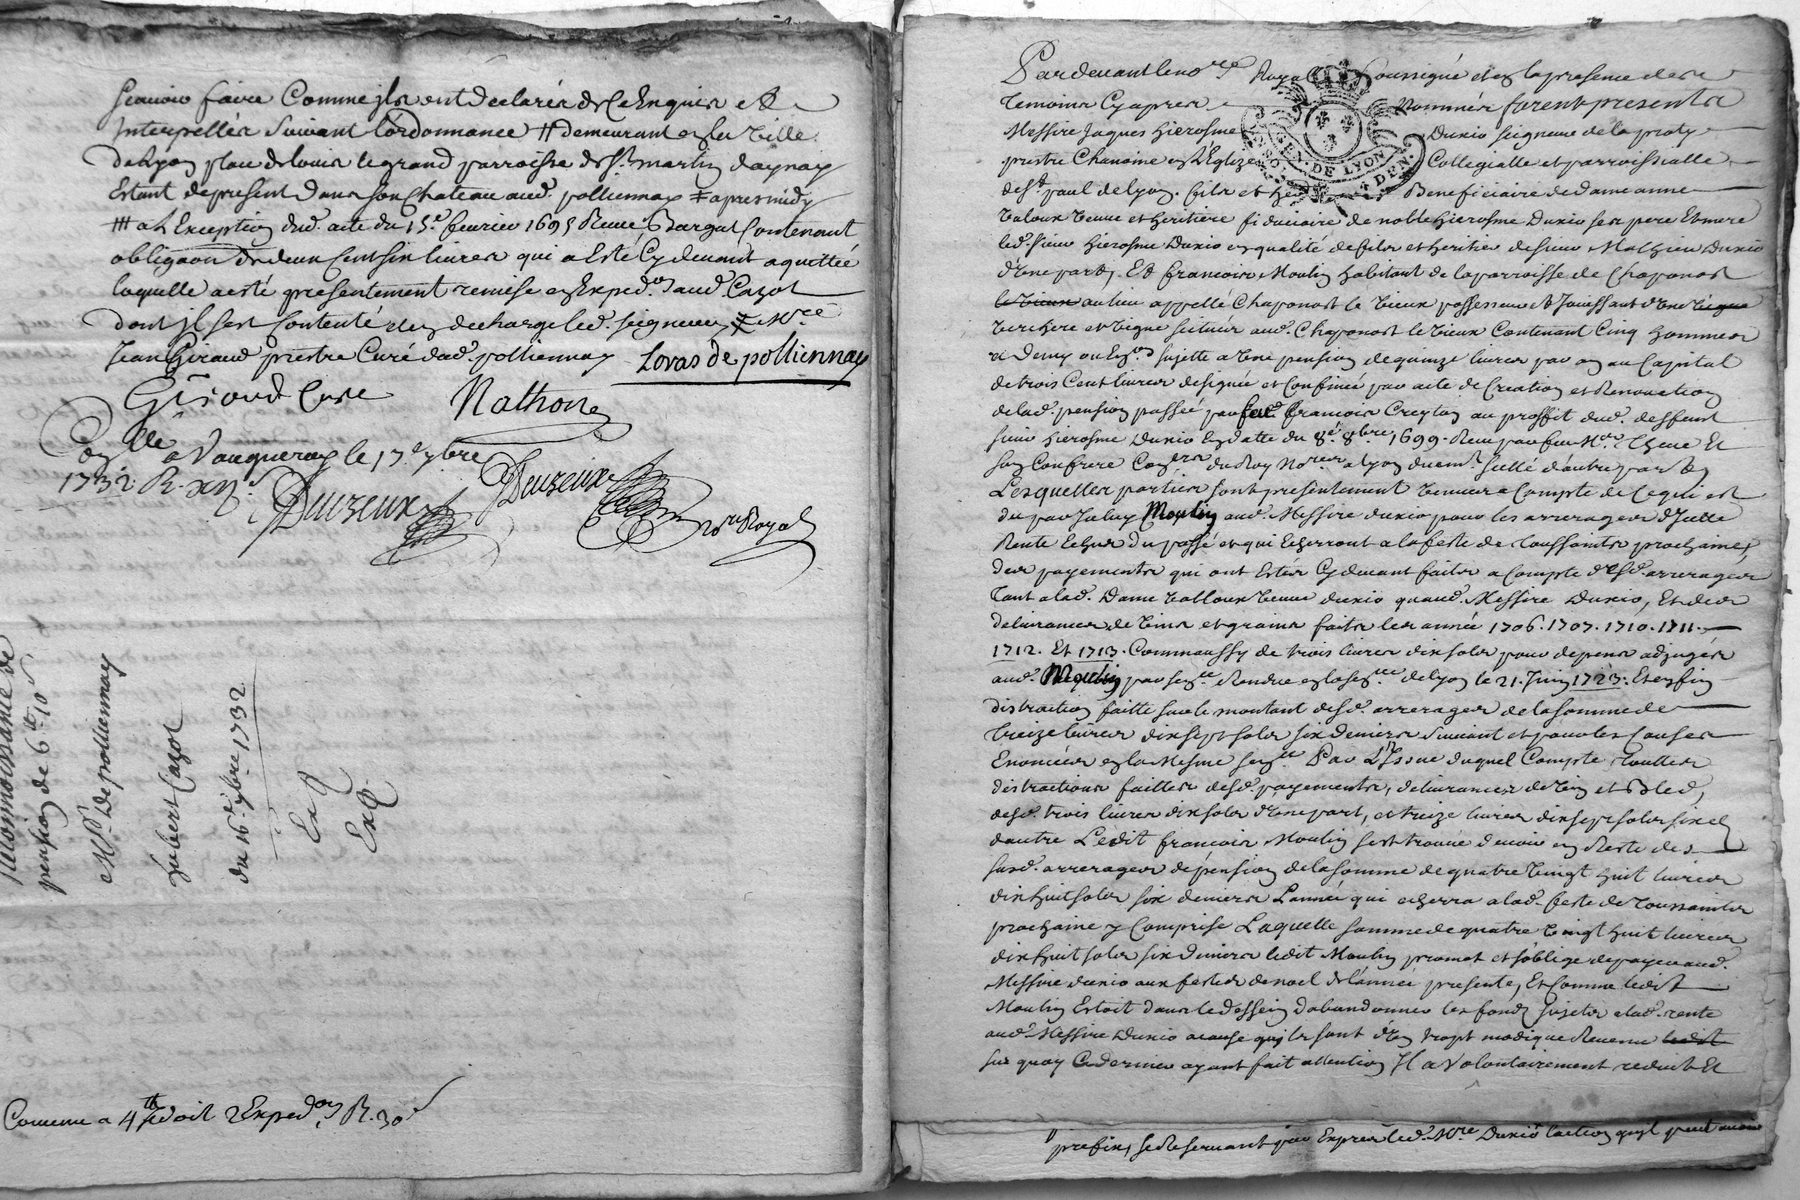 Sçavoir faire Comme ils ont declarés de Ce Enquis et
Interpellés Suivant L'ordonnance # demeurant en la Ville
de Lyon place de Louis le grand parroisse de St. martin daynay
Estant de present dans son Chateau aud. polliennay ‡ apres midy
a L Exception dud. acte du 15e. fevrier 1695 Reçu Bargat Contenant
obligaon de deux Cent six livres qui a Esté Cy devant aquittée
laquelle a esté presentement remise en Exped.on aud. Cazot
dont il s'est Contenté et en decharge led. seigneur, ‡ Mre
Jean Giraud prestre Curé dud. polliennay Lovas de pollienna
Giroud Cure Nathon
Con.lle a Vaugneray le 17e. 7bre
1732. R.
Deuzeux Deuzeux
no.re Royal
pension de 6tt. 10s
Mr. De polliennay
hubert Cazot
du 16e. 7bre. 1732
Exp
Exp
Convenu a 4tt doit 2 Exped.on R. 30s
Pardevant le no.re Royal soussigné et en la presence des
temoins Cy apres Nommés furent presents
Messire Jaques hierosme Duxio seigneur de la
prestre Chanoine en L'Eglize Collegialle et parroissialle
GEN. DE LYON
de St. paul de Lyon. fils et Beneficiaire de dame anne
Valoux veuve et heritiere fiduciaire de noble hierosme Duxio ses pere Et mere
led. sieur hierosme Duxio en qualité de fils et heritier de sieur Mathieu Duxio
d'Une part, Et francois Moulin habitant de la parroisse de Chaponost
le vieux au lieu appellé Chaponost le vieux possesseur et Jouissant d'Une
verchere et vigne scitués aud. Chaponost le vieux Contenant Cinq hommées
et demy ou En.on sujette a Une pension de quinze livres par an au Capital
de trois Cent livres designée et Confinée par acte de Creation et Renovation
de lad. pension passée par feu francois Creyton au proffit dud. deffunt
sieur hierosme Duxio En datte du 8e. 8bre. 1699. Reçu par feu Me. Et
son Confrere Con.ers du Roy No.res a Lyon duem.t scellé d'autre part
Lesquelles parties sont presentement venues a Compte de Ce qui est
du par Iceluy Moulin aud. Messire duxio pour les arrerages d'Icelle
Rente Echus du passé et qui Echerront a la feste de Toussaints prochaine,
des payements qui ont Estés Cy devant faits a Compte desd. arrerages
Tant a lad. Dame Valloux veuve duxio quaud. Messire Duxio, Et des
delivrances de vins et grains faits les année 1706. 1707. 1710. 1711.
1712. Et 1713. Commaussy de trois livres dix sols pour depens adjugés
aud. Moulin par sen.ce Rendue en la sen.ée de Lyon le 21. Juin 1723. Et enfin
distraction faitte sur le montant desd. arrerages de la somme de
treize livres dix sept sols six deniers suivant et pour les Causes
Enoncées en la Mesme sen.ce Par L'Issue duquel Compte, touttes
distractions faittes desd. payements, delivrances de vin et Bled,
desd. trois livres dix sols d'Une part, et treize livres dix sept sols six d.
d'autre Ledit francois Moulin s'est trouvé devoir en Reste des
susd. arrerages de pension de la somme de quatre vingt huit livres
dix huit sols six deniers L'année qui echerra a lad. feste de Toussaints
prochaine y Comprise Laquelle somme de quatre vingt huit livres
dix huit sols six deniers ledit Moulin promet et s'oblige de payer aud.
Messire duxio aux festes de noel de l'année presente, Et Comme ledit
Moulin Estoit dans le dessein d'abandonner les fonds sujets a lad. rente
aud. Messire Duxio a cause qu'ils sont d'Un tropt modique Revenu ledit
sur quoy Ce dernier ayant fait attention Il a Volontairement reduit Et
prefix, se Reservant par Exprès led. Mre. Duxio l'action qu'il peut avoir